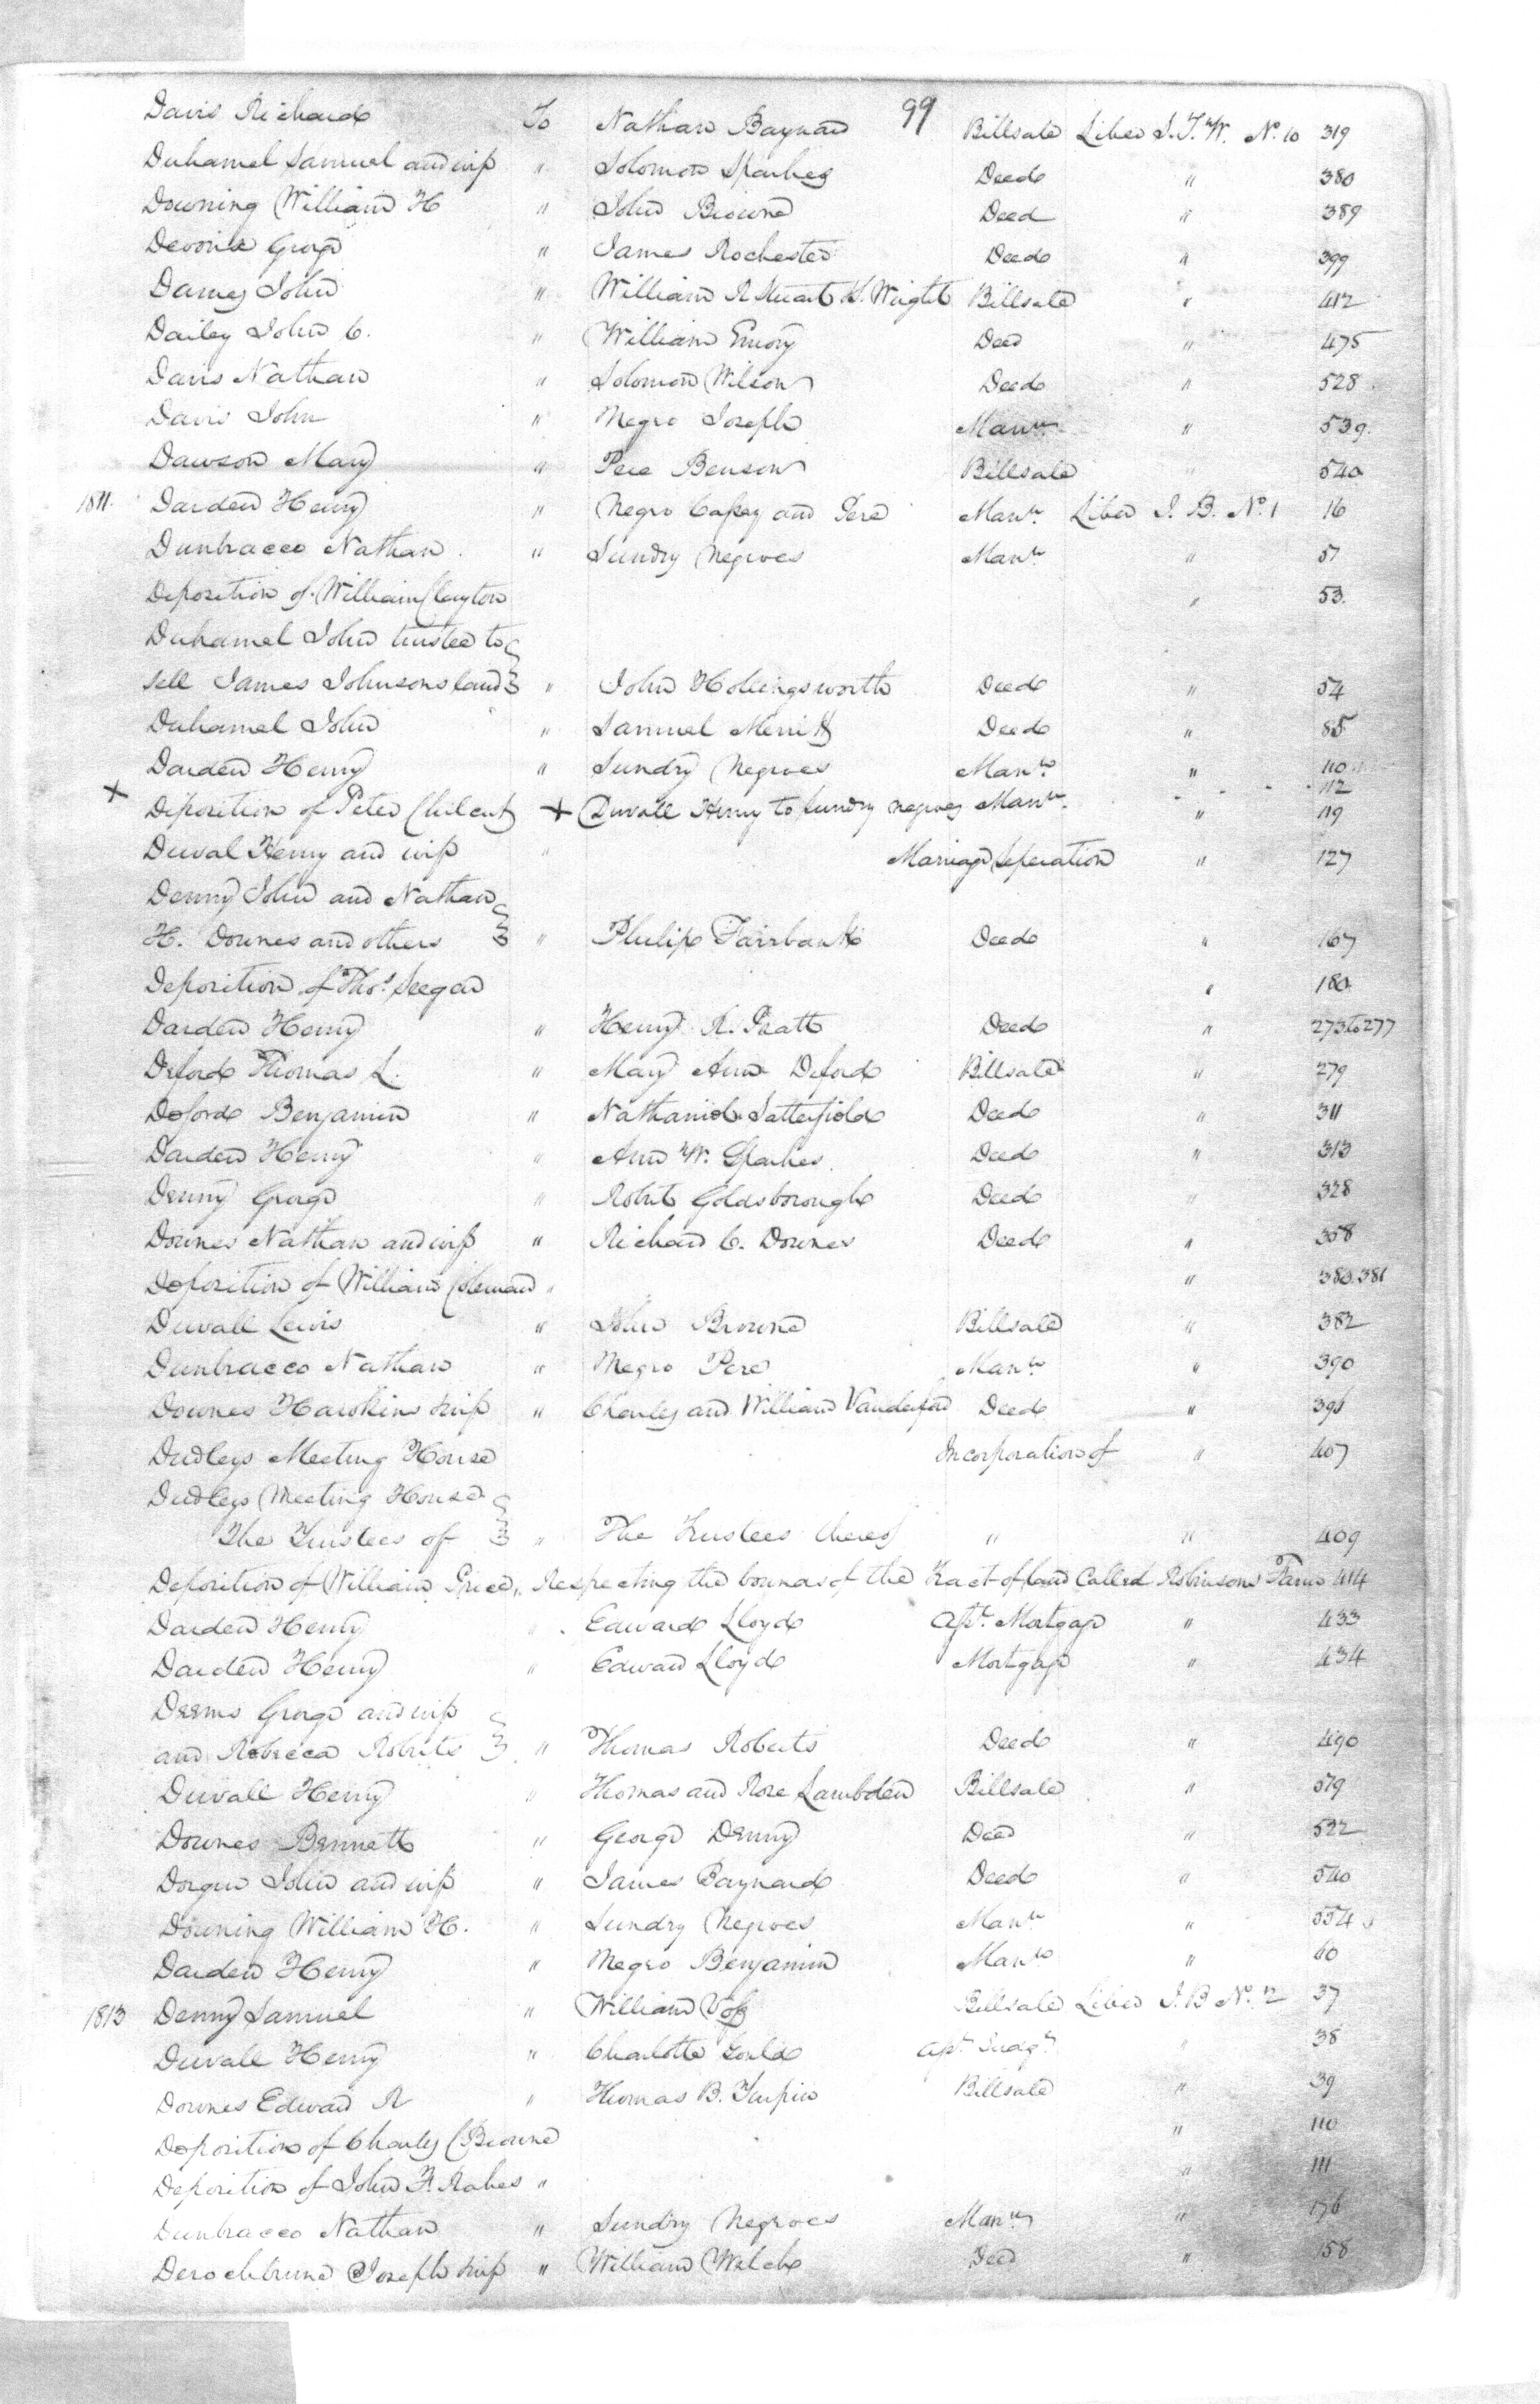 99
Davis Richard To Nathan Baynard Billsale Liber S. T. W. No. 10 319
Duhamel Samuel and wife " Solomon Sparkes Deed " 380
Downing William H " John Browne Deed " 389
George " James Rochester Deed " 399
Dames John " William R Stuart & T. Wright Billsale " 412
Dailey John C. " William Emory Deed " 475
Davis Nathan " Solomon Wilson Deed " 528
Davis John " Negro Joseph Mann. " 539.
Dawson Mary " Pere Benson Billsale " 540
1811. Darden Henry " Negro and Pere Mann. Liber I. B. No. 1 16
Dunbracco Nathan " Sundry Negroes Mann. " 51
Deposition of William Clayton " 53.
Duhamel John trustee to
sell James Johnsons land " John Hollingsworth Deed " 54
Duhamel John " Samuel Merritt Deed " 85
Darden Henry " Sundry Negroes Mann. " 110
x Deposition of Peter Chilcutt x Duvall Henry to sundry negroes Mann. - - - - 112 " 119
Duval Henry and wife " Marriage Seperation " 127
Denny John and Nathan
H. Downes and others " Philip Fairbanks Deed " 167
Deposition of Thos. Seegar " 180
Darden Henry " Henry R. Pratt Deed " 273 to 277
Deford Thomas L. " Mary Ann Deford Billsale " 279
Deford Benjamin " Nathaniel Satterfield Deed " 311
Darden Henry " Ann W. Sparkes Deed " 313
Denny George " Robert Goldsborough Deed " 328
Downes Nathan and wife " Richard C. Downes Deed " 358
Deposition of William Coleman " " 380.381
Duvall Lewis " John Browne Billsale " 382
Dunbracco Nathan " Negro Pere Mann. " 390
Downes Hawkins & wife " Charles and William Vanderford Deed " 395
Dudleys Meeting House Incorporation of " 407
Dudleys Meeting House
The Trustees of " The Trustees thereof " " 409
Deposition of William Price " Respecting the bounds of the Tract of land Called Robinsons Farm 414
Darden Henry " Edward Lloyd Mortgage " 433
Darden Henry " Edward Lloyd Mortgage " 434
Deems George and wife
and Rebecca Roberts " Thomas Roberts Deed " 490
Duvall Henry " Thomas and Rose Lambden Billsale " 519
Downes Bennett " George Denny Deed " 522
John and wife " James Baynard Deed " 540
Downing William H. " Sundry Negroes Mann. " 554
Darden Henry " Negro Benjamin Mann. " 60
1813 Denny Samuel " William Billsale Liber I. B No. 2 37
Duvall Henry " Charlotte Gould Judgt. " 38
Downes Edward R " Thomas B. Turpin Billsale " 39
Deposition of Charles Browne " 110
Deposition of John F. Rakes " " 111
Dunbracco Nathan " Sundry Negroes Mann. " 176
Derochbrune Joseph & wife " William Welch Deed " 158